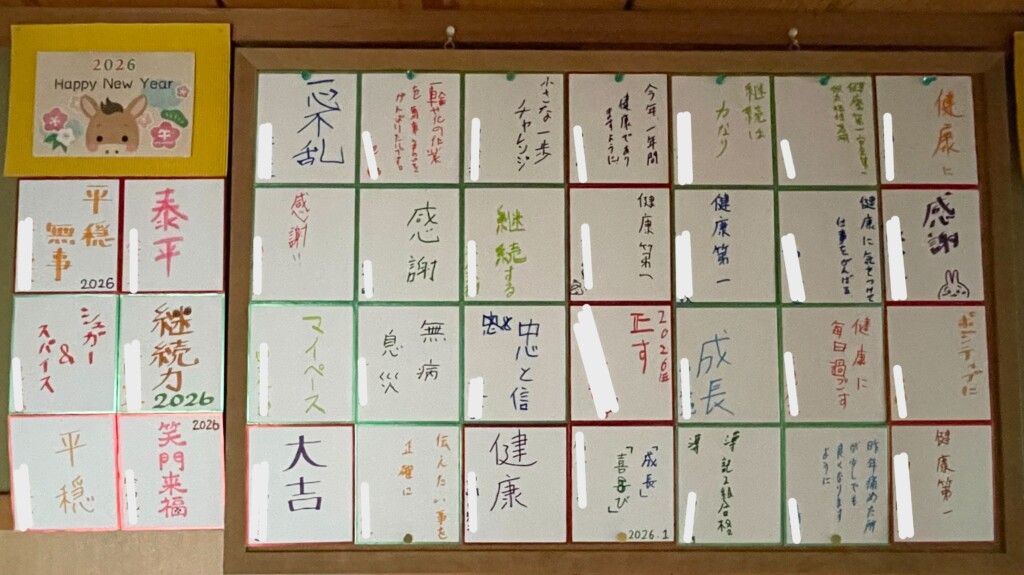 2026
Happy New Year
午
平穏
無事
2026
泰平
シュガー
&
スパイス
継続力
2026
平穏
2026
笑門来福
一心不乱
小さな一歩
チャレンジ
今年、一年間
健康であり
ますように
継続は
力なり
健康に
感謝!!
感謝
継続する
健康第一
健康第一
健康に気をつけて
仕事をがんばる
感謝
マイペース
無病
息災
忠と信
2026年
正す
成長
健康に
毎日過ごす
ポジティブに
大吉
伝えたい事を
正確に
健康
「成長」
「喜び」
2026.1
簿記2級合格
昨年痛めた所
が少しでも
良くなります
ように
健康第一